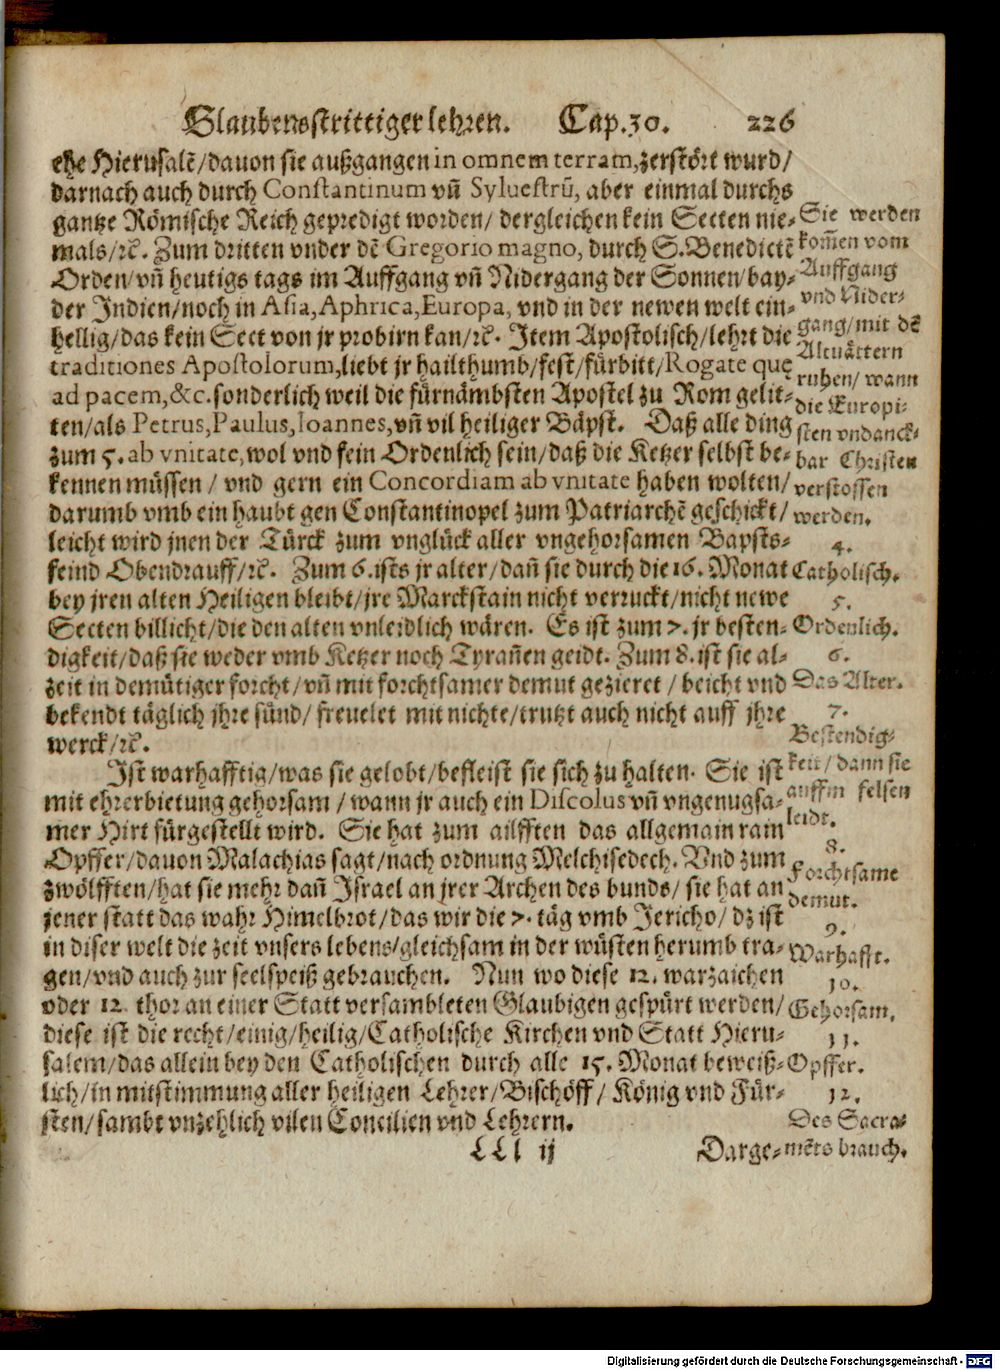 Glaubensstrittiger lehren. Cap.30. 226
ehe Hierusalẽ/dauon sie außgangen in omnem terram,zerstört wurd/
darnach auch durch Constantinum vñ Syluestrũ, aber einmal durchs
gantze Römische Reich gepredigt worden/ dergleichen kein Secten nie-
mals/ꝛc. Zum dritten vnder dẽ Gregorio magno, durch S.Benedictẽ
Orden/vñ heutigs tags im Auffgang vñ Nidergang der Sonnen/bay-
der Indien/noch in Asia,Aphrica,Europa, vnd in der newen welt ein-
hellig/das kein Sect von jr probirn kan/ꝛc. Item Apostolisch/lehrt die
traditiones Apostolorum,liebt jr hailthumb/fest/fürbitt/Rogate quę
ad pacem,&c.sonderlich weil die fürnämbsten Apostel zu Rom gelit-
ten/als Petrus,Paulus,Ioannes,vñ vil heiliger Bäpst. Daß alle ding
zum 5.ab vnitate,wol vnd fein Ordenlich sein/daß die Ketzer selbst be-
kennen müssen / vnd gern ein Concordiam ab vnitate haben wolten/
darumb vmb ein haubt gen Constantinopel zum Patriarchẽ geschickt/
leicht wird jnen der Türck zum vnglück aller vngehorsamen Bapsts-
feind Obendrauff/ꝛc. Zum 6.ists jr alter/dañ sie durch die 16. Monat
bey jren alten Heiligen bleibt/jre Marckstain nicht verruckt/nicht newe
Secten billicht/die den alten vnleidlich wären. Es ist zum 7. jr besten-
digkeit/daß sie weder vmb Ketzer noch Tyrañen geidt. Zum 8.ist sie al-
zeit in demütiger forcht/vñ mit forchtsamer demut gezieret / beicht vnd
bekendt täglich jhre sünd/ freuelet mit nichte/trutzt auch nicht auff jhre
werck/ꝛc.
Ist warhafftig/was sie gelobt/befleist sie sich zu halten. Sie ist
mit ehrerbietung gehorsam / wann jr auch ein Discolus vñ vngenugsa-
mer Hirt fürgestellt wird. Sie hat zum ailfften das allgemain rain
Opffer/dauon Malachias sagt/nach ordnung Melchisedech. Vnd zum
zwölfften/hat sie mehr dañ Israel an jrer Archen des bunds/ sie hat an
jener statt das wahr Himelbrot/das wir die 7. täg vmb Jericho/ dz ist
in diser welt die zeit vnsers lebens/gleichsam in der wüsten herumb tra-
gen/vnd auch zur seelspeiß gebrauchen. Nun wo diese 12. warzaichen
oder 12. thor an einer Statt versambleten Glaubigen gespürt werden/
diese ist die recht/einig/heilig/Catholische Kirchen vnd Statt Hieru-
salem/das allein bey den Catholischen durch alle 15. Monat beweiß-
lich/in mitstimmung aller heiligen Lehrer/Bischöff/ König vnd Für-
sten/sambt vnzehlich vilen Concilien vnd Lehrern.
LLl ij Darge-
Sie werden
kom̃en vom
Auffgang
vnd Nider-
gang/mit dẽ
Altvättern
ruhen/ wann
die Europi-
sten vndanck-
bar Christen
verstossen
werden.
4.
Catholisch.
5.
Ordenlich.
6.
Das Alter.
7.
Bestendig-
keit/dann sie
auffm felsen
leidt.
8.
Forchtsame
demut.
9.
Warhafft.
10.
Gehorsam.
11.
Opffer.
12.
Des Sacra-
mẽts brauch.
Digitalisierung gefördert durch die Deutsche Forschungsgemeinschaft - DFG